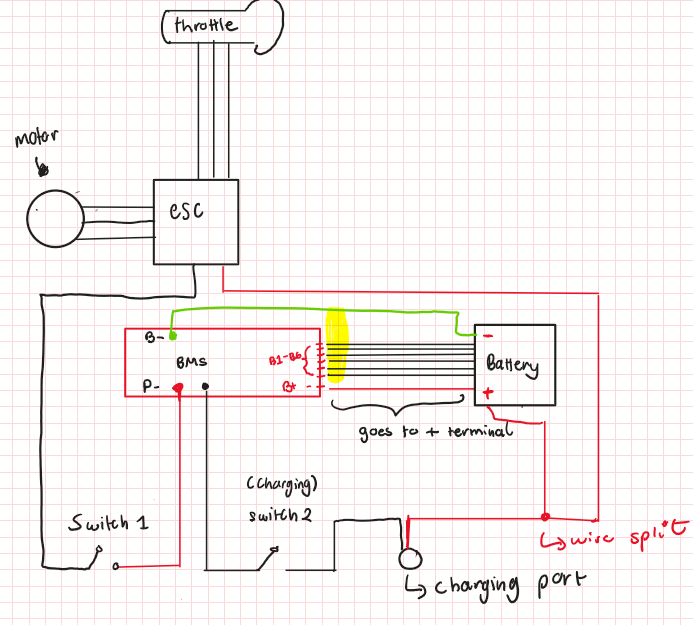 throttle
motor
esc
B-
BMS
B1-B6
P-
B+
-
Battery
+
goes to + terminal
(Charging)
switch 2
Switch 1
↳ wire split
↳ charging port